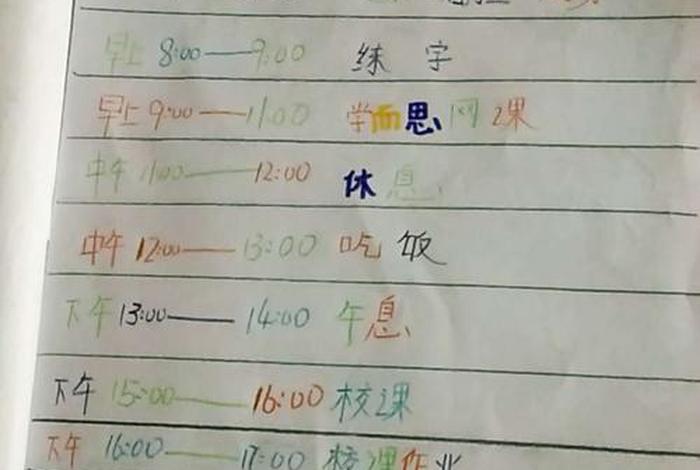 早上 8:00——9:00 练字
早上 9:00——11:00 学而思网课
中午 11:00——12:00 休息
中午 12:00——13:00 吃饭
下午 13:00——14:00 午息
下午 15:00——16:00 校课
下午 16:00——17:00 校课作业